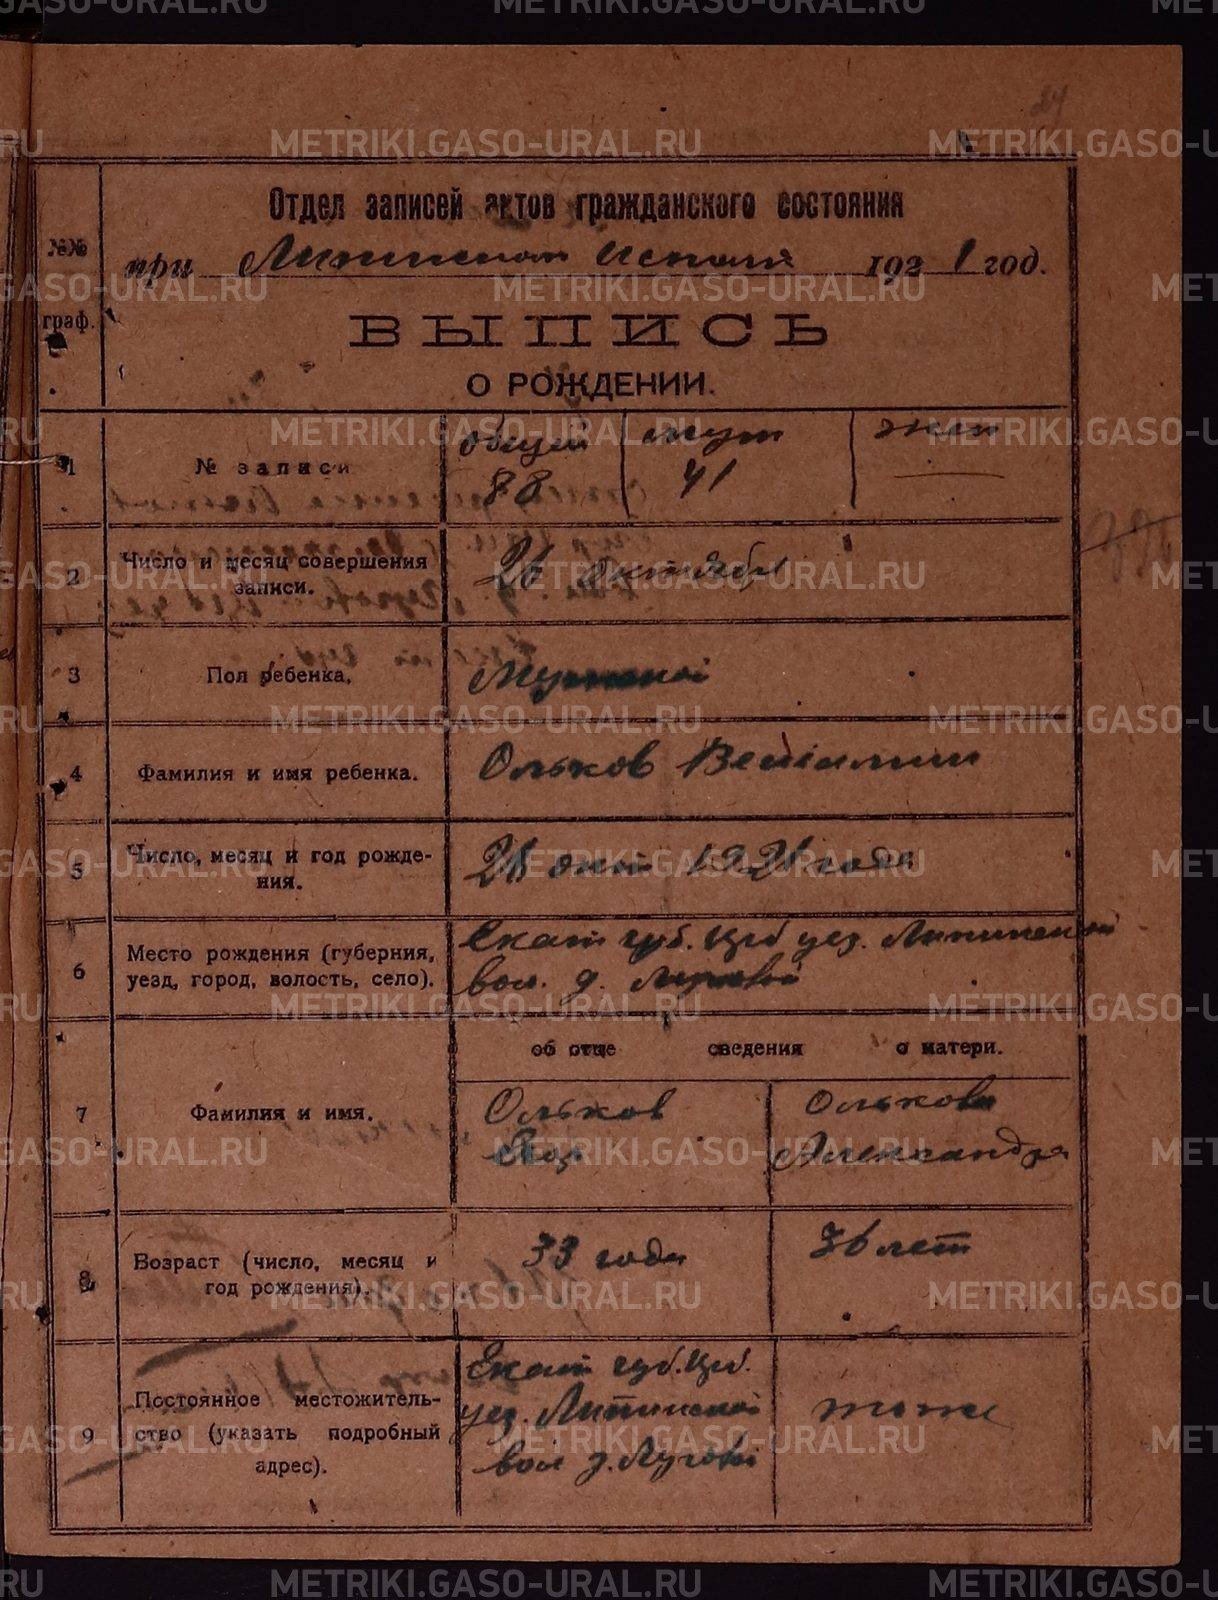 24
Отдел записей актов гражданского состояния
№№ граф.
при Липинском Исполк 1921 год.
ВЫПИСЬ
О РОЖДЕНИИ.
1 № записи общий 88 муж 41 жен —
2 Число и месяц совершения
записи. 26 октября
3 Пол ребенка. Мужской
4 Фамилия и имя ребенка. Ольков Вениамин
5 Число, месяц и год рожде-
ния. окт 1921 года
6 Место рождения (губерния, Екат губ. Ирб уез. Липинской
уезд, город, волость, село). вол. д. Луговой
об отце сведения о матери.
7 Фамилия и имя. Ольков Олькова
Александра
8 Возраст (число, месяц и 33 года 36 лет
год рождения).
Екат губ. Ирб.
9 Постоянное местожитель- уез. Липинской тоже
ство (указать подробный
адрес). вол д. Луговой
METRIKI.GASO-URAL.RU